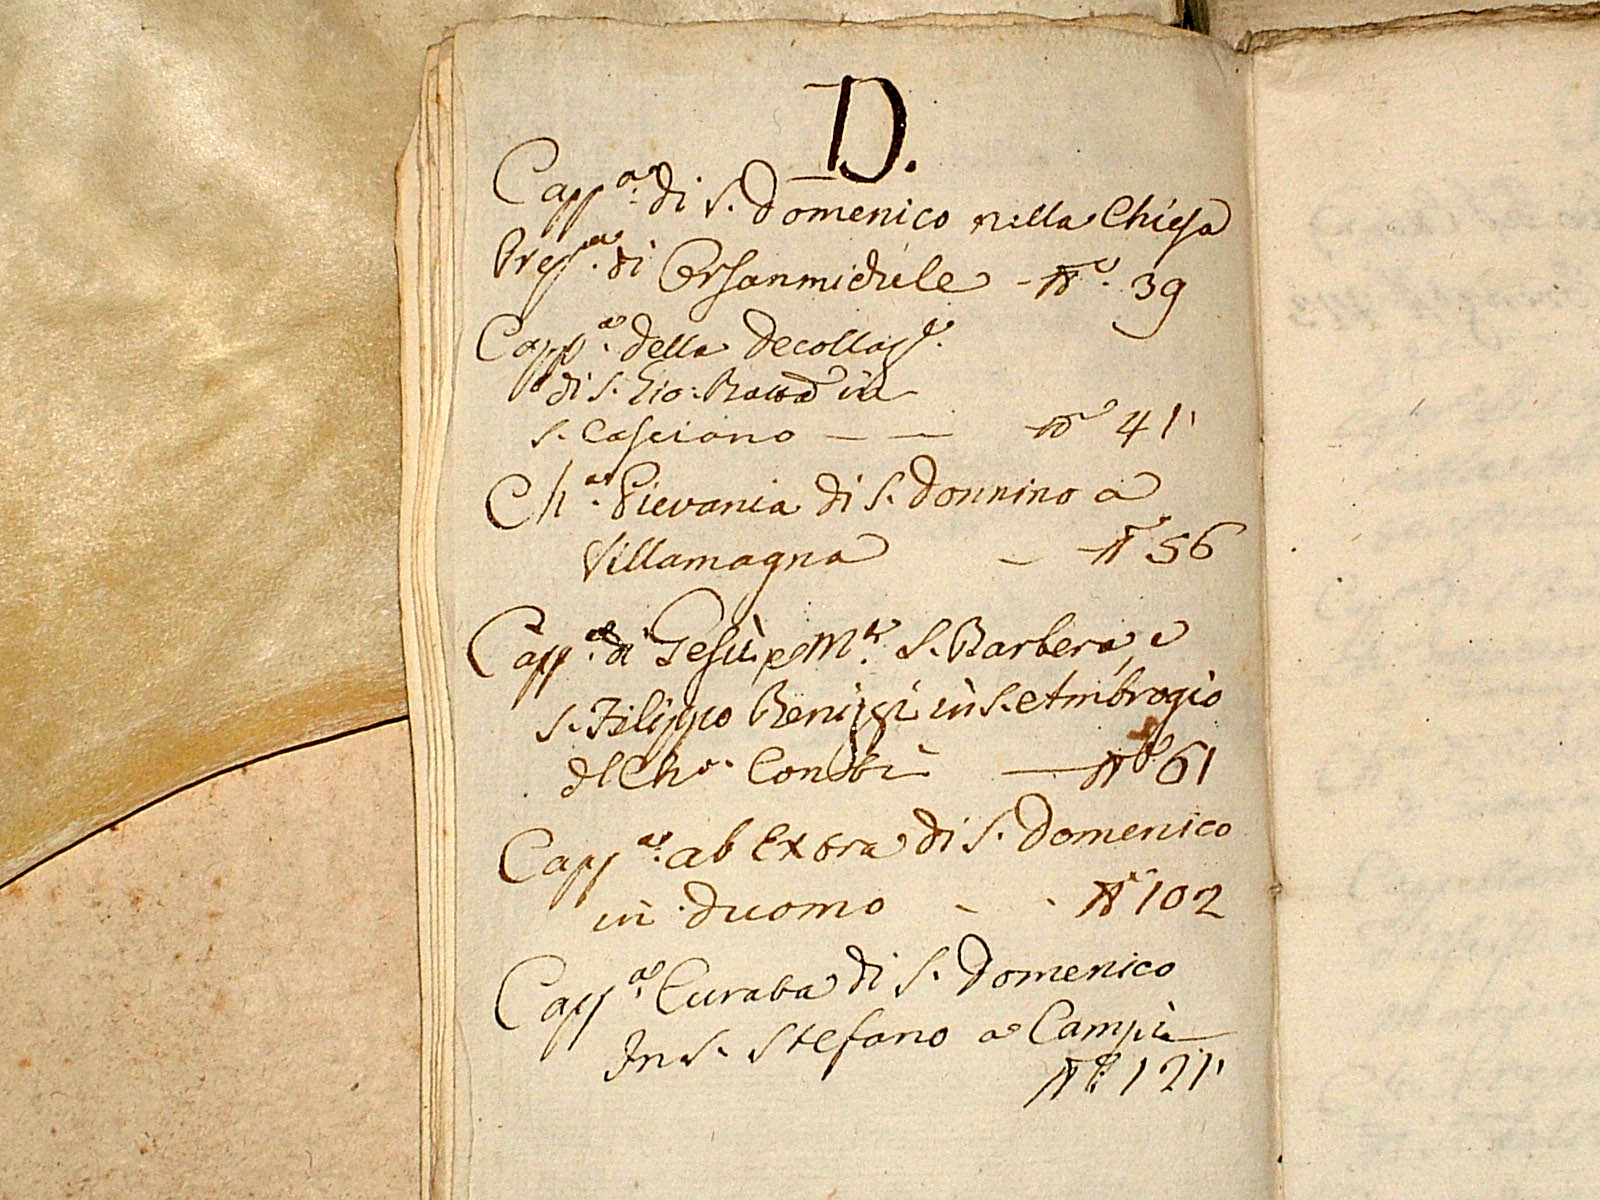 D.
Capp.a di S. Domenico nella Chiesa
di Orsanmichele - No. 39
Capp.a della Decollaz.e
di S. Gio: Batta in
S. Casciano — — No 41
Ch.a Pievania di S. Donnino a
Villamagna — No 56
Capp.a di Gesù, S. Barbera, e
S. Filippo Benizzi in S. Ambrogio
No 61
Capp.a ab Extra di S. Domenico
in Duomo - - No 102
Capp.a Curata di S. Domenico
In S. Stefano a Campi
No. 121